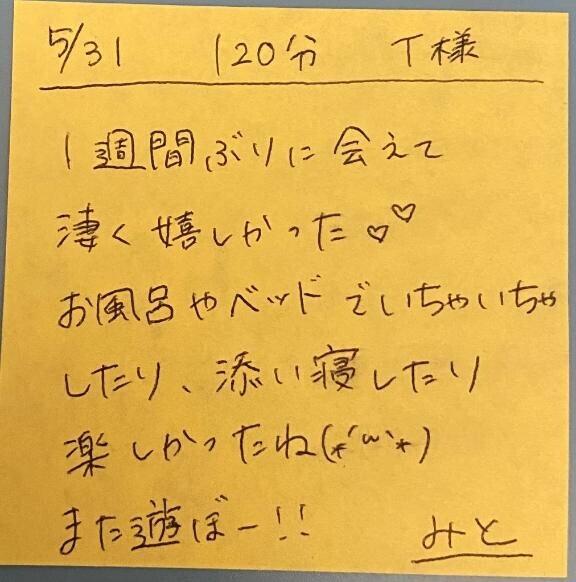 5/31 120分 T様
1週間ぶりに会えて
凄く嬉しかった♡♡
お風呂やベッドでいちゃいちゃ
したり、添い寝したり
楽しかったね(*´ω`*)
また遊ぼー!!
みと